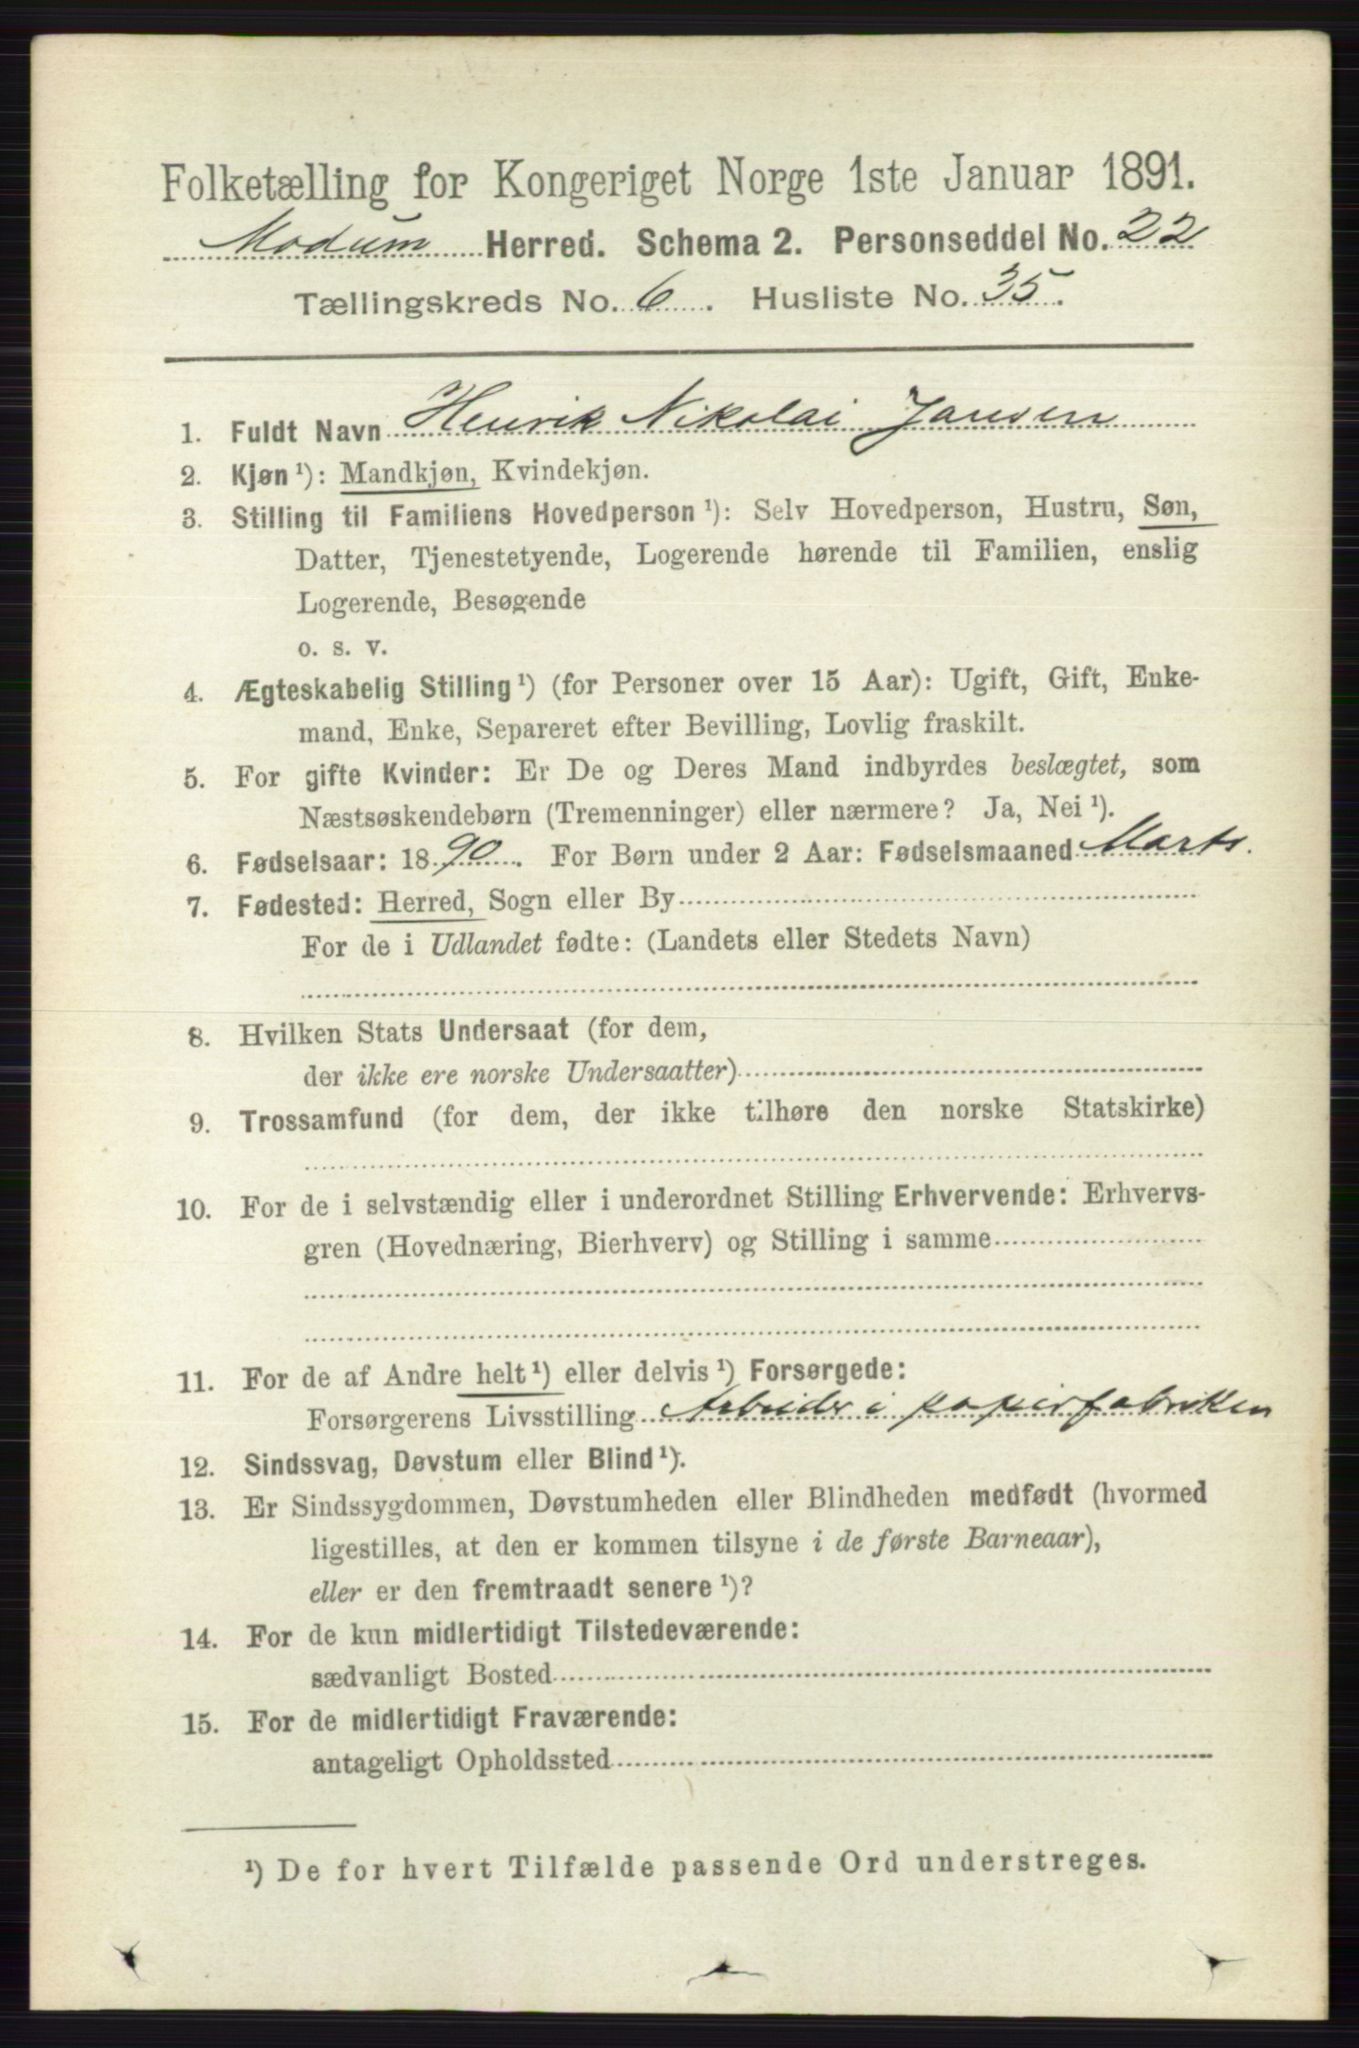 Folketælling for Kongeriget Norge 1ste Januar 1891.
Modum Herred. Schema 2. Personseddel No. 22
Tællingskreds No. 6. Husliste No. 35.
1. Fuldt Navn Henrik Nikolai Jansen
2. Kjøn ¹): Mandkjøn, Kvindekjøn.
3. Stilling til Familiens Hovedperson ¹): Selv Hovedperson, Hustru, Søn,
Datter, Tjenestetyende, Logerende hørende til Familien, enslig
Logerende, Besøgende
o. s. v.
4. Ægteskabelig Stilling ¹) (for Personer over 15 Aar): Ugift, Gift, Enke-
mand, Enke, Separeret efter Bevilling, Lovlig fraskilt.
5. For gifte Kvinder: Er De og Deres Mand indbyrdes beslægtet, som
Næstsøskendebørn (Tremenninger) eller nærmere? Ja, Nei ¹).
6. Fødselsaar: 1890. For Børn under 2 Aar: Fødselsmaaned Marts.
7. Fødested: Herred, Sogn eller By
For de i Udlandet fødte: (Landets eller Stedets Navn)
8. Hvilken Stats Undersaat (for dem,
der ikke ere norske Undersaatter)
9. Trossamfund (for dem, der ikke tilhøre den norske Statskirke)
10. For de i selvstændig eller i underordnet Stilling Erhvervende: Erhvervs-
gren (Hovednæring, Bierhverv) og Stilling i samme
11. For de af Andre helt ¹) eller delvis ¹) Forsørgede:
Forsørgerens Livsstilling Arbeider i papirfabriken
12. Sindssvag, Døvstum eller Blind ¹).
13. Er Sindssygdommen, Døvstumheden eller Blindheden medfødt (hvormed
ligestilles, at den er kommen tilsyne i de første Barneaar),
eller er den fremtraadt senere ¹)?
14. For de kun midlertidigt Tilstedeværende:
sædvanligt Bosted
15. For de midlertidigt Fraværende:
antageligt Opholdssted
¹) De for hvert Tilfælde passende Ord understreges.